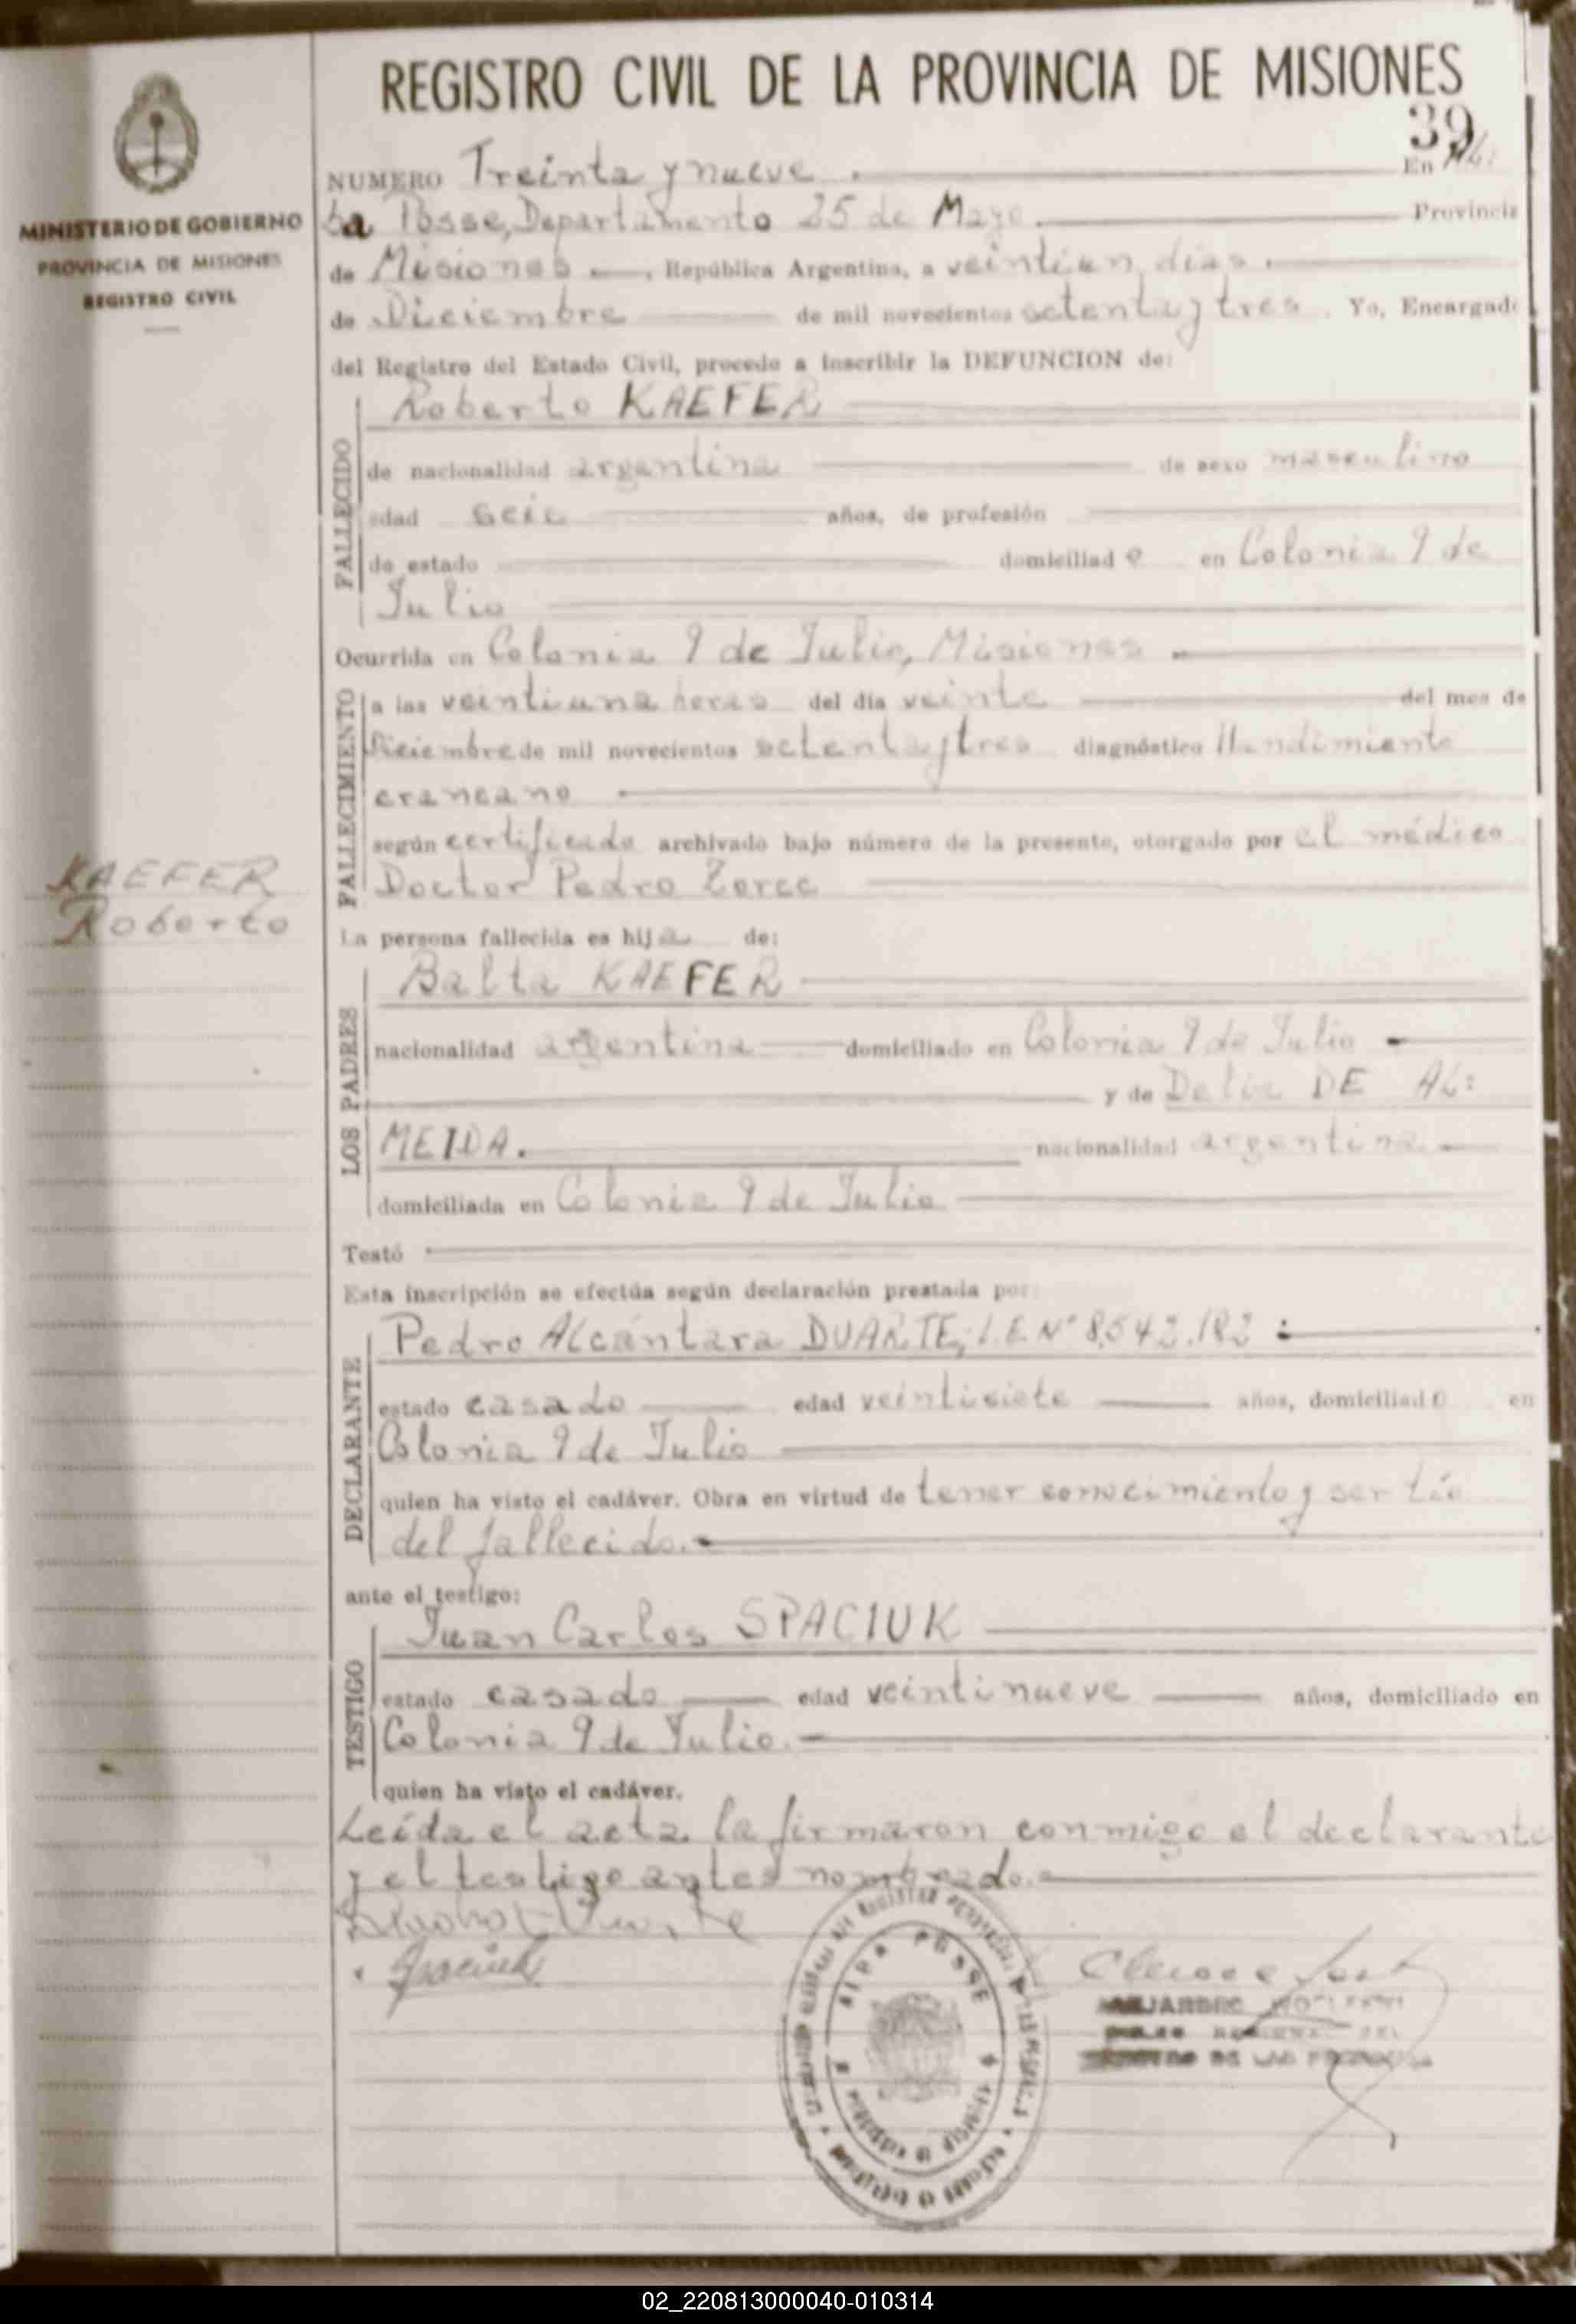 REGISTRO CIVIL DE LA PROVINCIA DE MISIONES
39
MINISTERIO DE GOBIERNO
PROVINCIA DE MISIONES
REGISTRO CIVIL
NUMERO Treinta y nueve. En Al:
ba Posse, Departamento 25 de Mayo. Provincia
de Misiones, República Argentina, a veintiun dias.
de Diciembre de mil novecientos setenta y tres. Yo, Encargado
del Registro del Estado Civil, procedo a inscribir la DEFUNCION de:
FALLECIDO
Roberto KAEFER
de nacionalidad argentina de sexo masculino
edad seis años, de profesión
de estado domiciliado en Colonia 9 de
Julio
Ocurrida en Colonia 9 de Julio, Misiones.
FALLECIMIENTO
a las veintiuna horas del día veinte del mes de
Diciembre de mil novecientos setenta y tres diagnóstico Hundimiento
craneano
según certificado archivado bajo número de la presente, otorgado por el médico
Doctor Pedro
KAEFER
Roberto
La persona fallecida es hija de:
LOS PADRES
Balta KAEFER
nacionalidad argentina domiciliado en Colonia 9 de Julio
y de Delia DE AL:
MEIDA. nacionalidad argentina
domiciliada en Colonia 9 de Julio
Testó
Esta inscripción se efectúa según declaración prestada por:
DECLARANTE
Pedro Alcántara DUARTE; L.E. Nº 8.542.182:
estado casado edad veintisiete años, domiciliado en
Colonia 9 de Julio
quien ha visto el cadáver. Obra en virtud de tener conocimiento y ser tío
del fallecido.
ante el testigo:
TESTIGO
Juan Carlos SPACIUK
estado casado edad veintinueve años, domiciliado en
Colonia 9 de Julio.
quien ha visto el cadáver.
Leída el acta la firmaron conmigo el declarante
y el testigo antes nombrado.
Spaciuk
ALBA POSSE
PROVINCIA DE MISIONES
ALEJANDRO
REGISTRO DE LAS PERSONAS
02_220813000040-010314